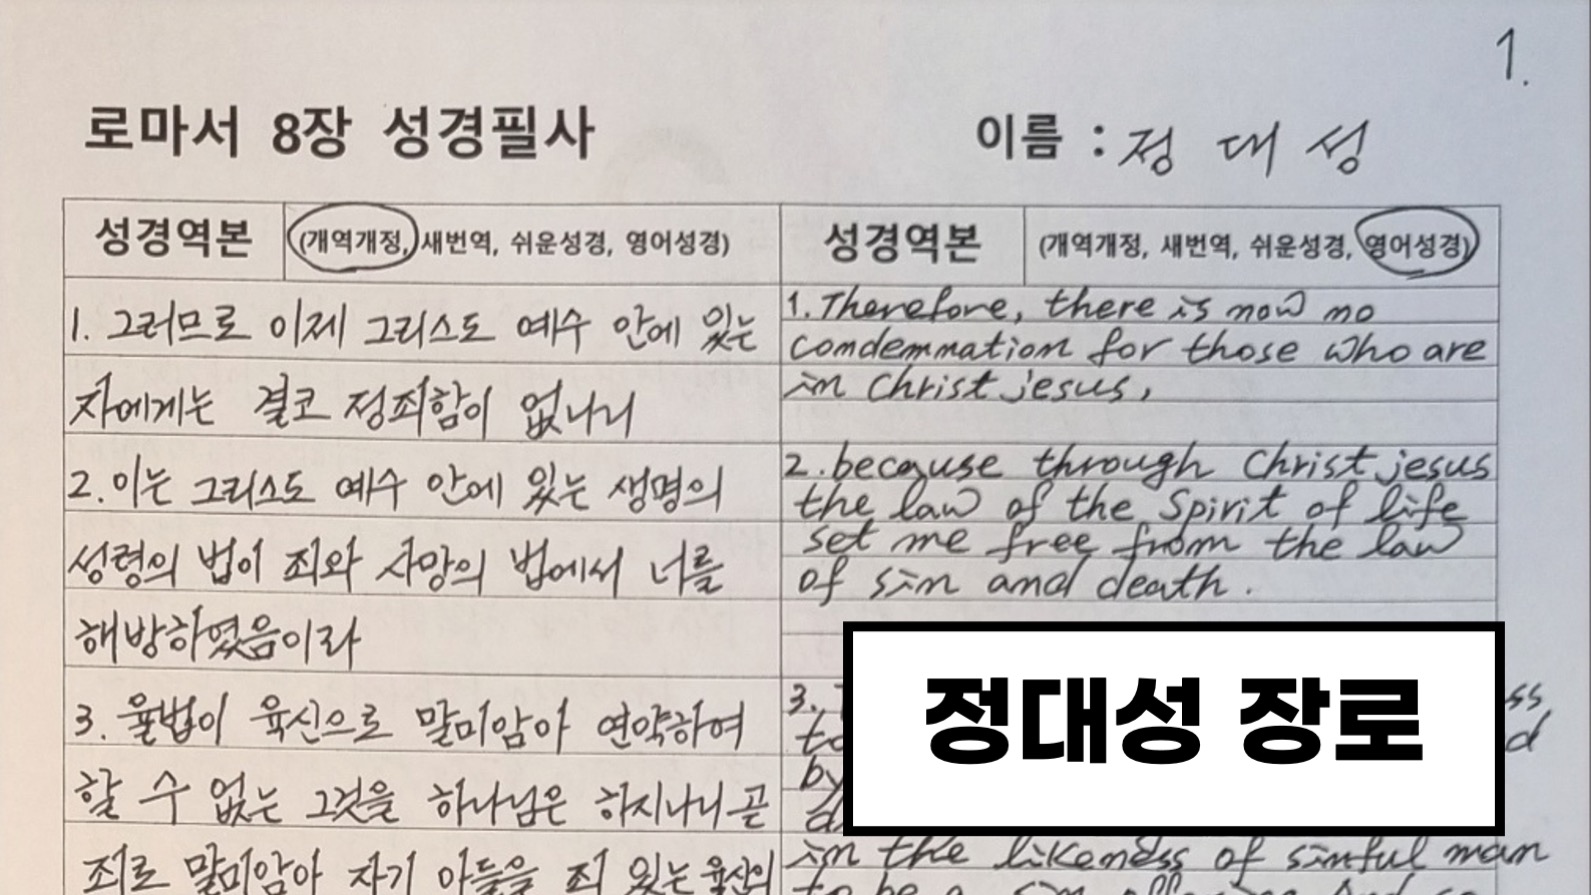 1.
로마서 8장 성경필사
이름 : 정 대 성
성경역본 (개역개정, 새번역, 쉬운성경, 영어성경)
1. 그러므로 이제 그리스도 예수 안에 있는
자에게는 결코 정죄함이 없나니
2. 이는 그리스도 예수 안에 있는 생명의
성령의 법이 죄와 사망의 법에서 너를
해방하였음이라
3. 율법이 육신으로 말미암아 연약하여
할 수 없는 그것을 하나님은 하지나니 곧
죄로 말미암아 자기 아들을 죄 있는 육신의
성경역본 (개역개정, 새번역, 쉬운성경, 영어성경)
1. Therefore, there is now no
condemnation for those who are
in Christ jesus,
2. because through Christ jesus
the law of the Spirit of life
set me free from the law
of sin and death.
3.
by
in the likeness of sinful man
정대성 장로